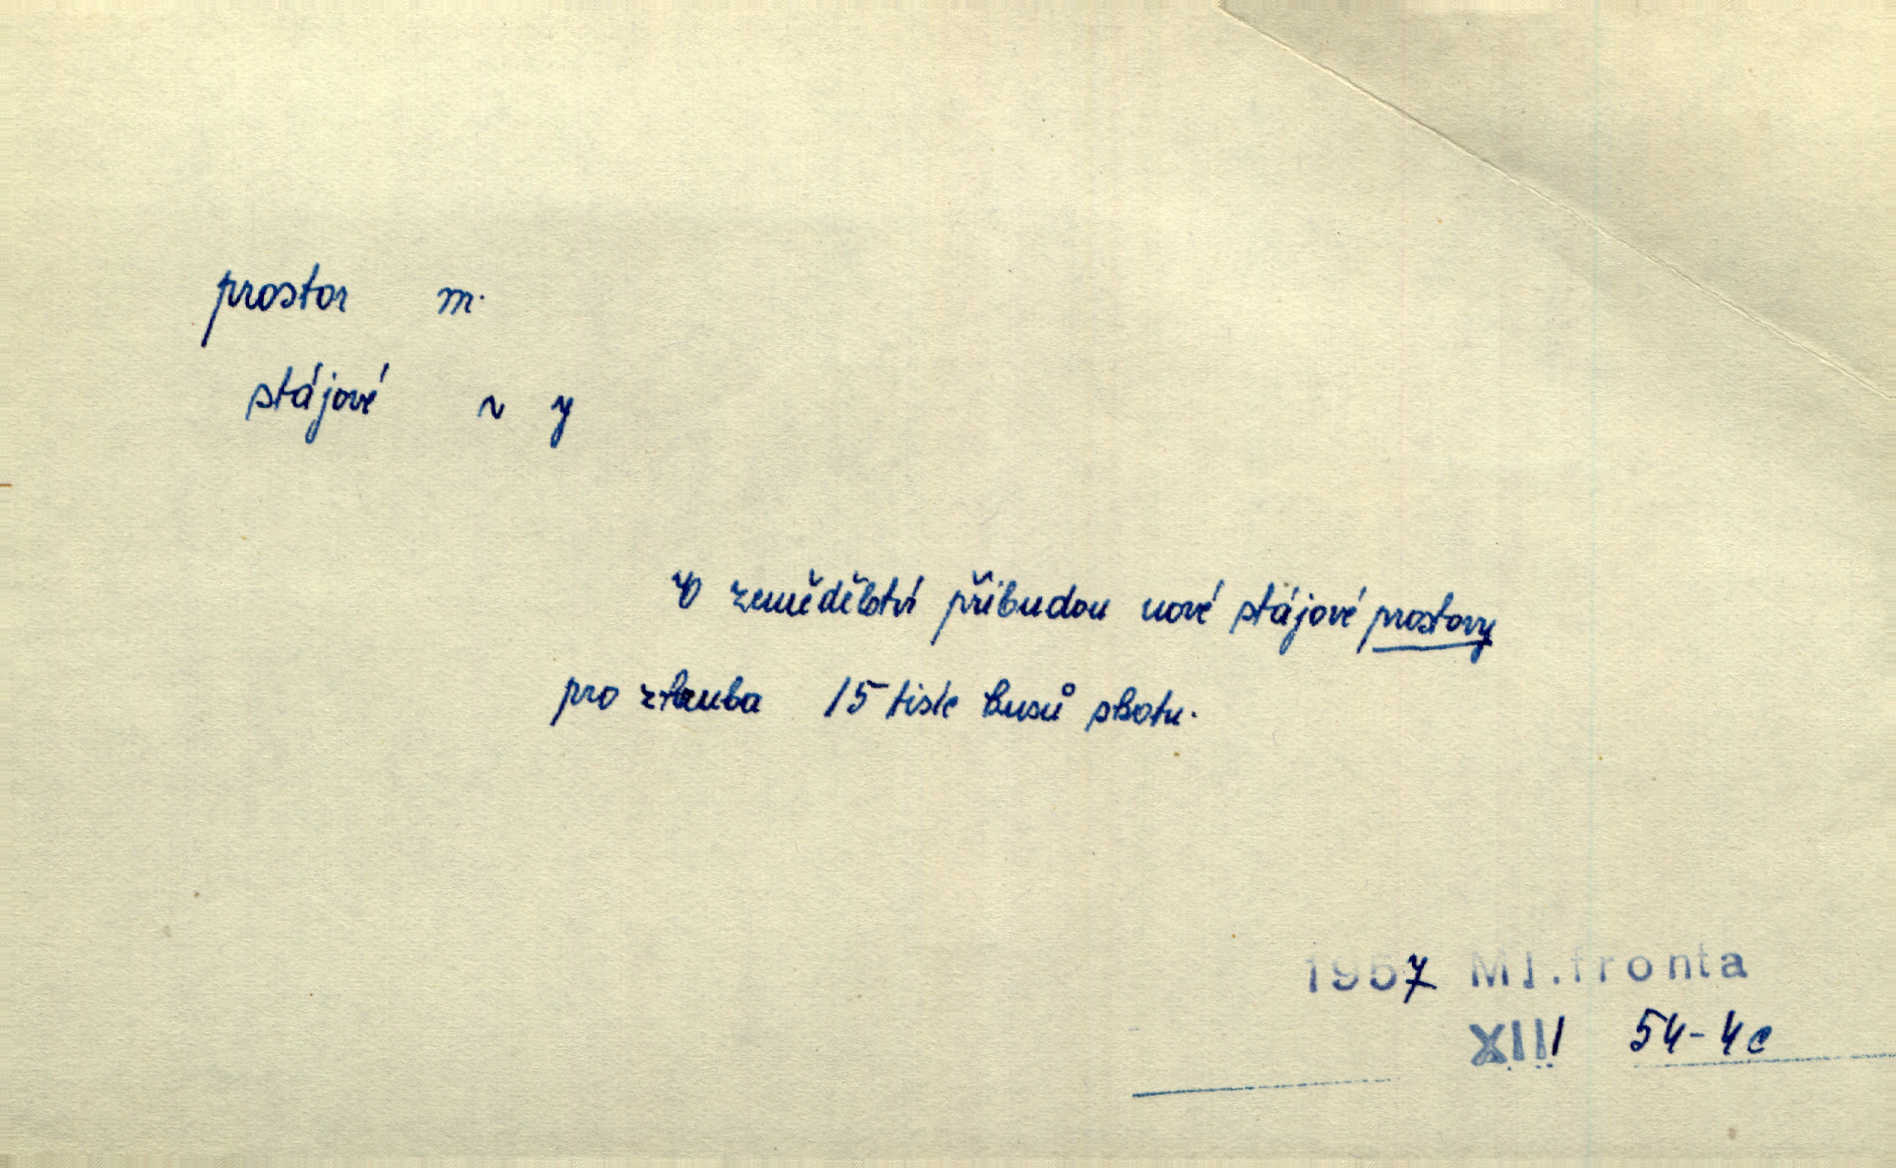 prostor m.
stájové ~ y
V zemědělství přibudou nové stájové prostory
pro zhruba 15 tisíc kusů skotu.
1957 Ml.fronta
XIII 54-4c